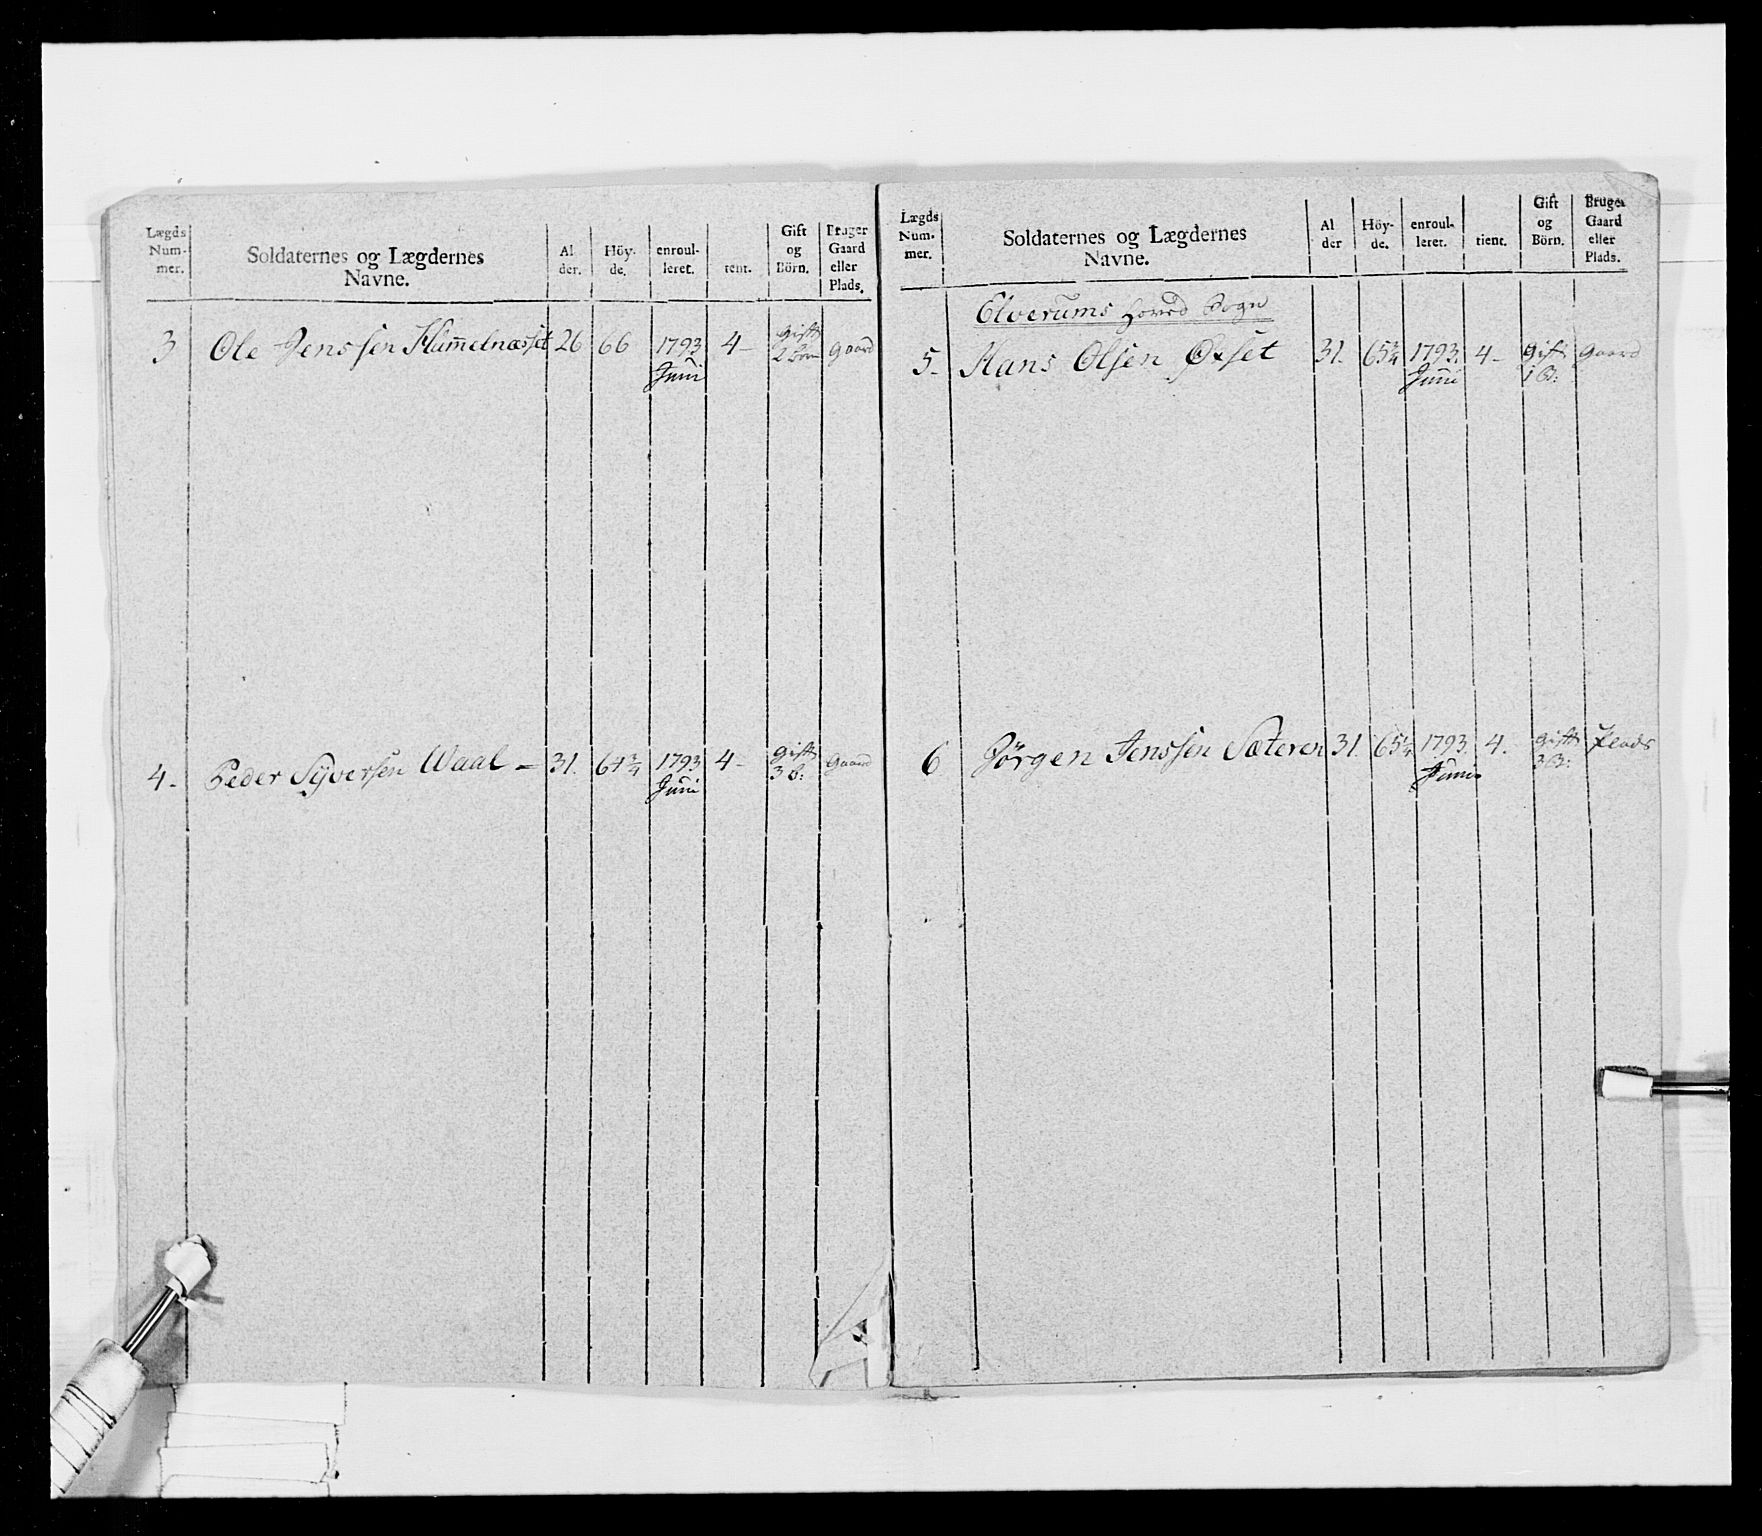 Lægds Num- mer.
Soldaternes og Lægdernes Navne.
Al der.
Höy- de.
enroul- leret.
tient.
Gift og Börn.
Bruger Gaard eller Plads.
3 Ole Jenssen Hummelnæsset 26 66 1793 Juni 4- Gift 2 Børn Gaard
4- Peder Syversen Waal - 31. 64 3/4 1793 Juni 4- Gift 3 B: Gaard
Lægds Num- mer.
Soldaternes og Lægdernes Navne.
Al der
Höy- de.
enroul- leret.
tient.
Gift og Börn.
Bruger Gaard eller Plads.
Elverums Hoved Sogn
5- Hans Olsen Øxset 31. 65 3/4 1793. Juni 4- Gift 1 B: Gaard
6 Jörgen Jenssen Sæteren 31 65 1/4 1793. Juni 4. Gift 3 B: Plads